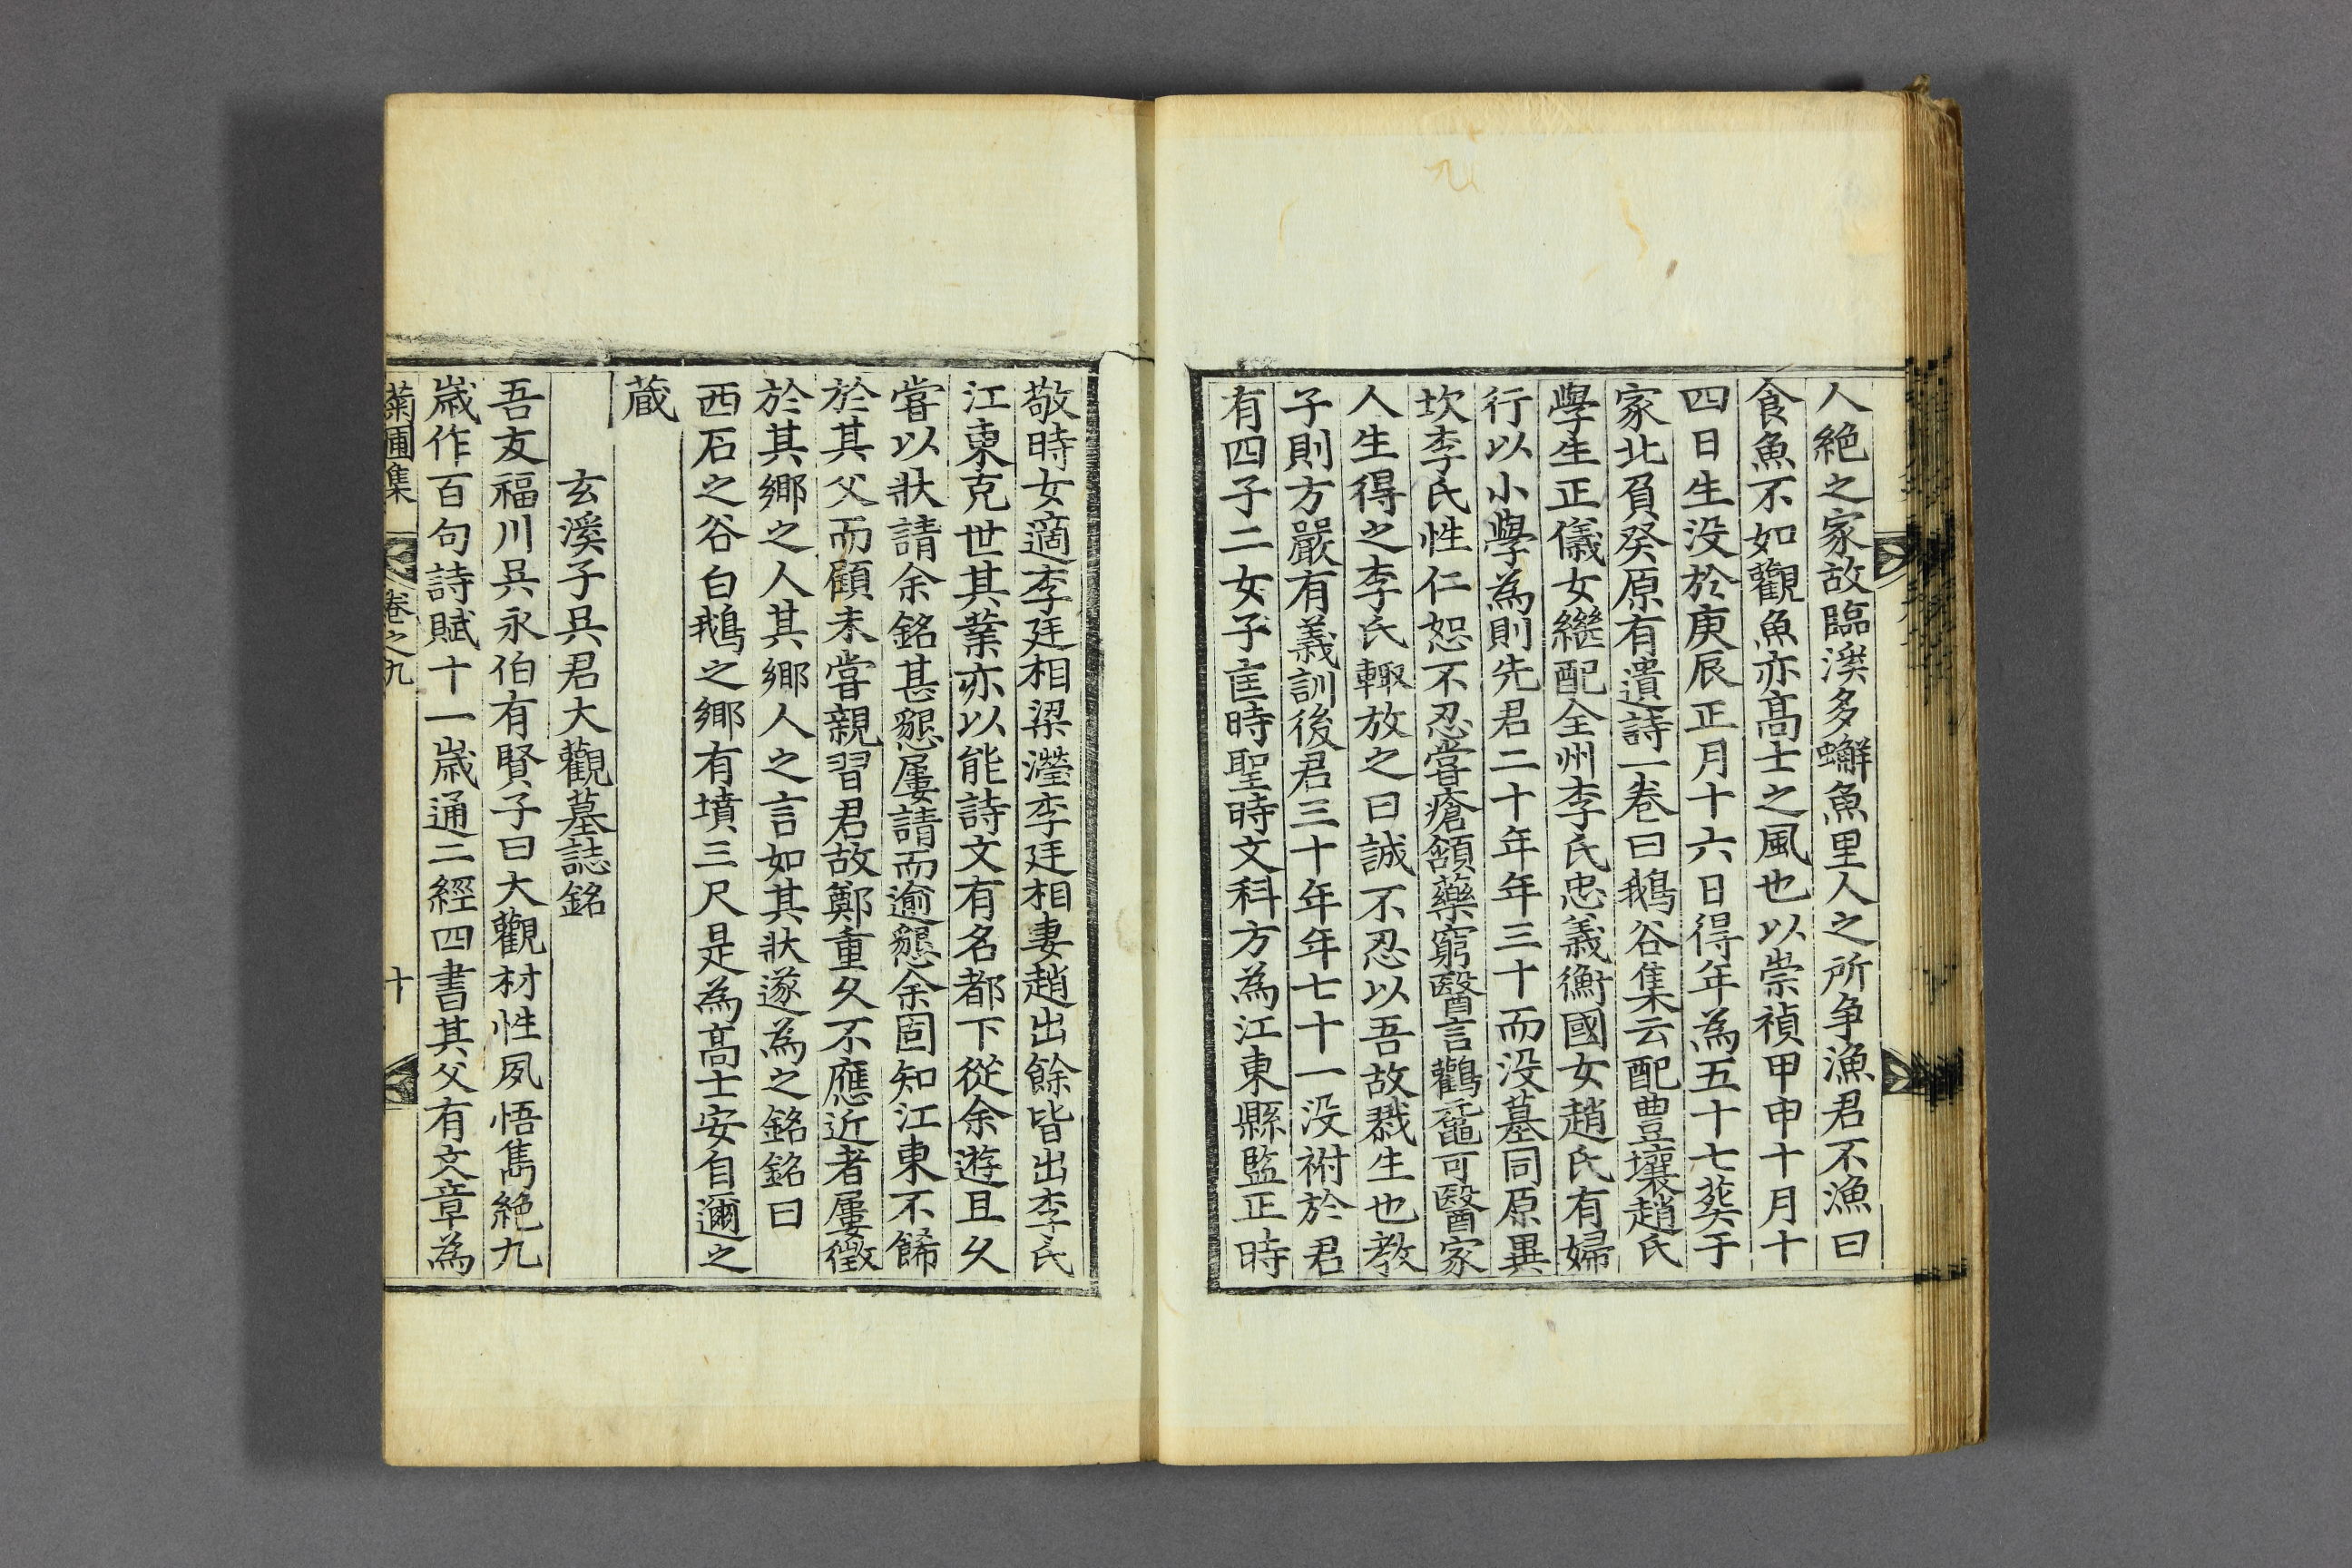 人絶之家故臨溪多蠏魚里人之所争漁君不漁曰
食魚不如觀魚亦高士之風也以崇禎甲申十月十
四日生没於庚辰正月十六日得年為五十七葬于
家北負癸原有遺詩一卷曰鵝谷集云配豊壤趙氏
學生正儀女繼配全州李氏忠義衡國女趙氏有婦
行以小學為則先君二十年年三十而没墓同原異
坎李氏性仁恕不忍嘗瘡頷藥窮醫言鸛黿可醫家
人生得之李氏輙放之曰誠不忍以吾故戮生也教
子則方嚴有義訓後君三十年年七十一没祔於君
有四子二女子㝎時聖時文科方為江東縣監正時
敬時女適李廷相梁瀅李廷相妻趙出餘皆出李氏
江東克世其業亦以能詩文有名都下從余遊且久
嘗以狀請余銘甚懇屢請而逾懇余固知江東不餙
於其父而顧未嘗親習君故鄭重久不應近者屢徵
於其郷之人其郷人之言如其狀遂為之銘銘曰
西石之谷白鵝之郷有墳三尺是為高士安自邇之
蔵
玄溪子吳君大觀墓誌銘
吾友福川吳永伯有賢子曰大觀材性夙悟雋絶九
歳作百句詩賦十一歳通二經四書其父有文章為
菊圃集 卷之九 十